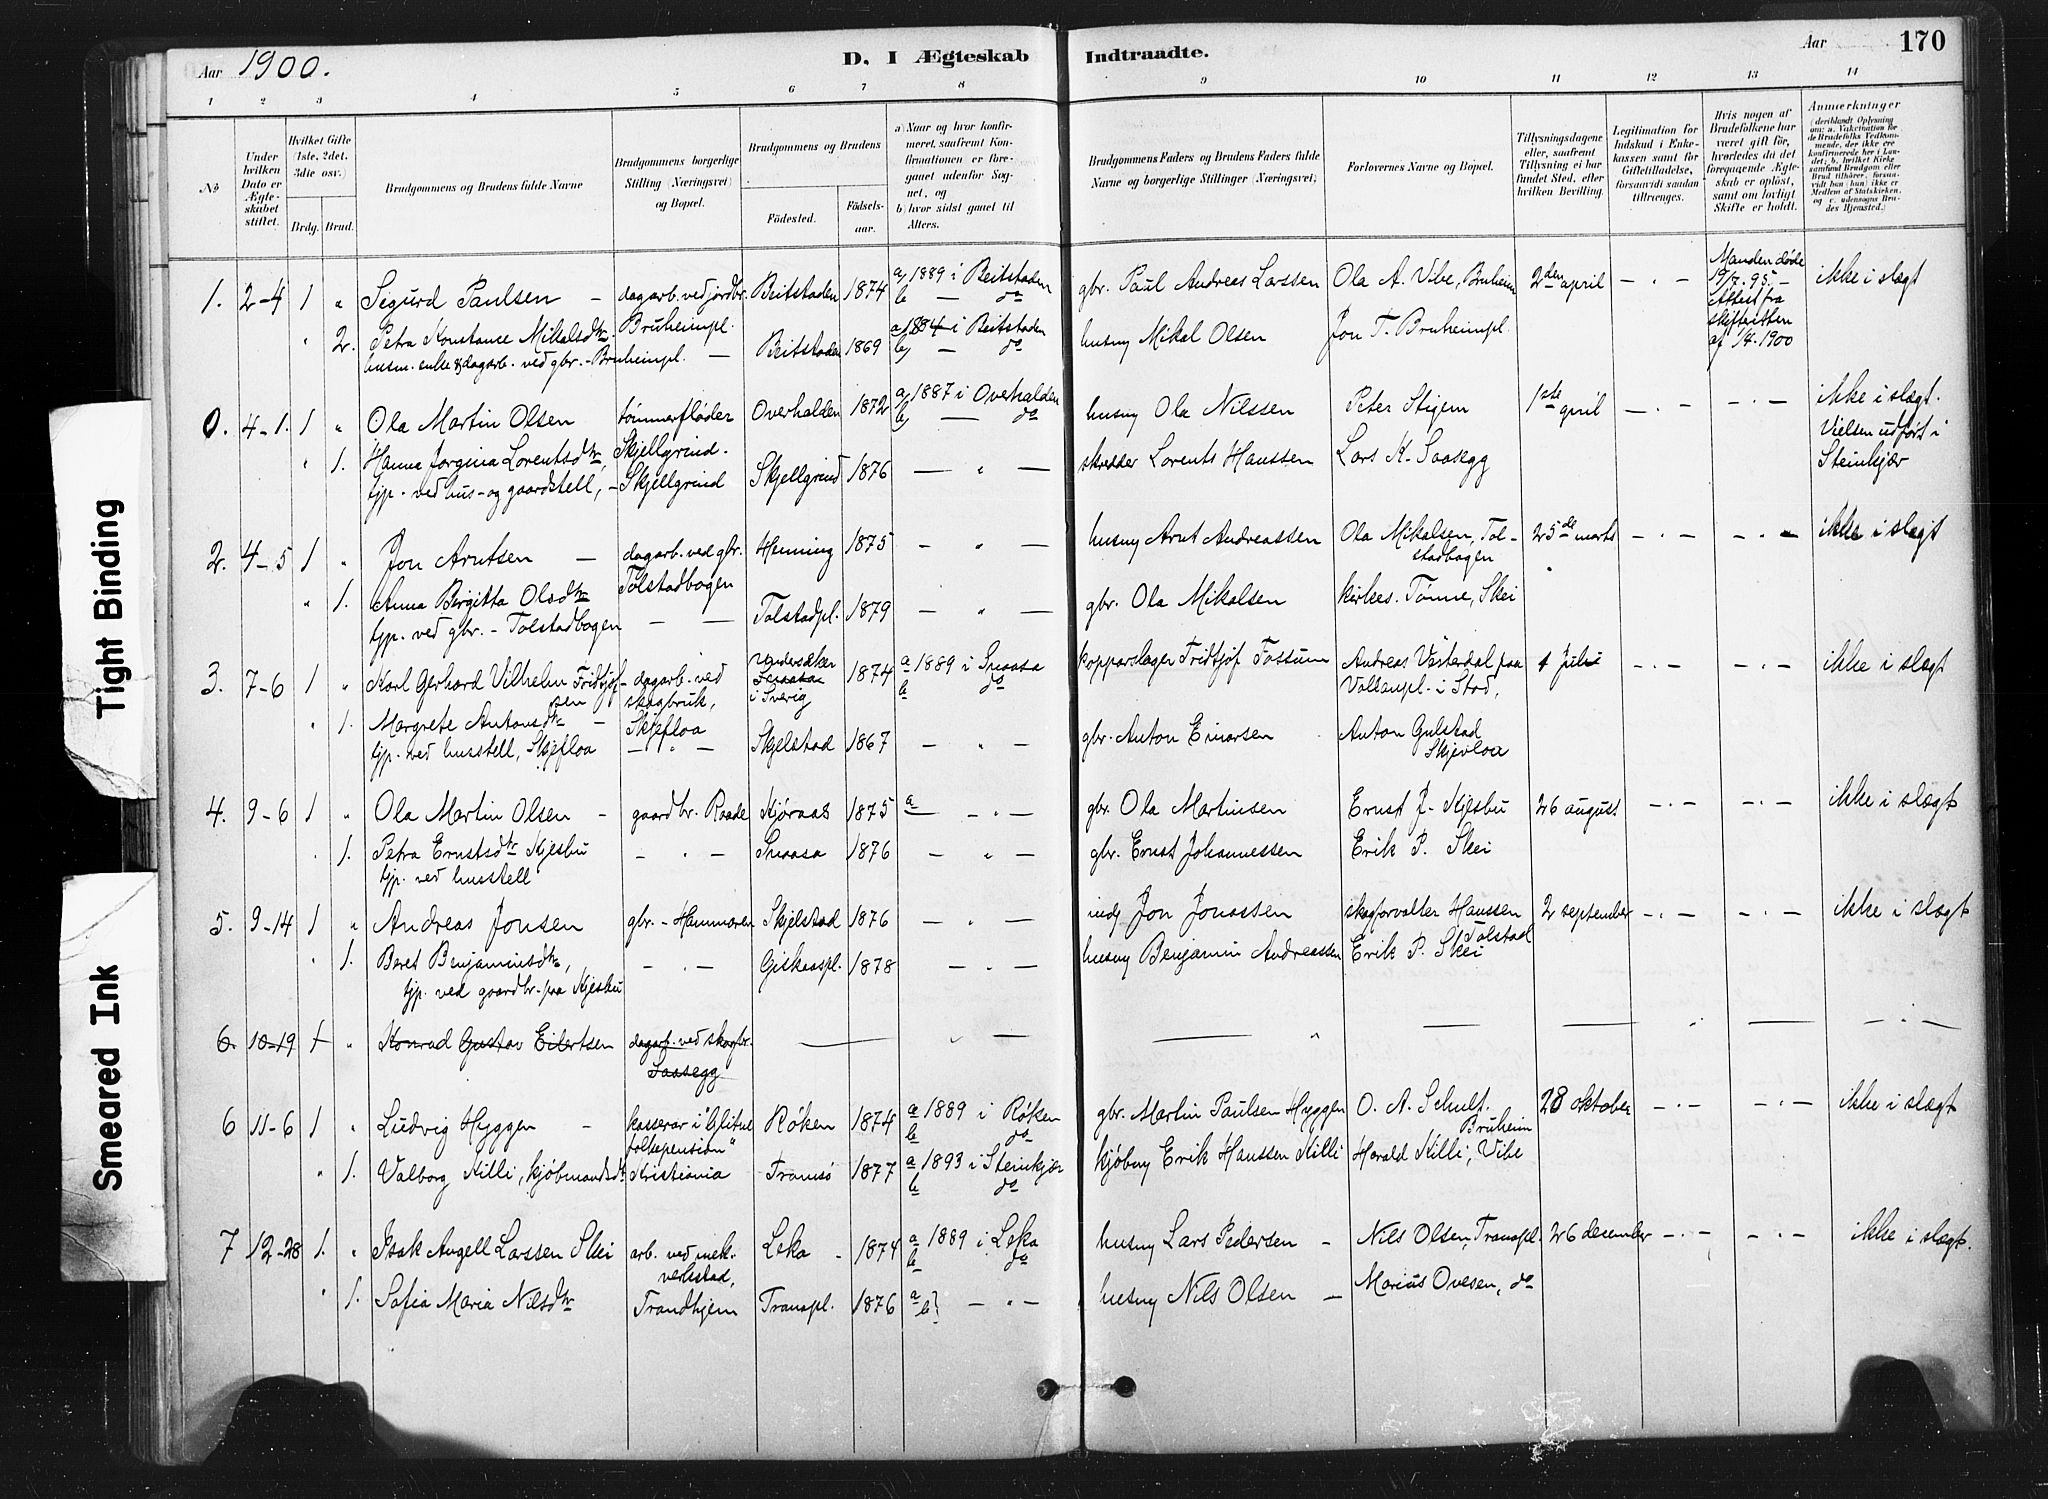 Aar 1900.
D. I Ægteskab Indtraadte.
Aar 170
1 2 3 4 5 6 7 8 9 10 11 12 13 14
No
Under hvilken Dato er Ægteskabet stiftet.
Hvilket Gifte (1ste, 2det, 3die osv.)
Brdg. Brud.
Brudgommens og Brudens fulde Navne
Brudgommens borgerlige Stilling (Næringsvei) og Bopæl.
Brudgommens og Brudens
Fødested. Fødsels-aar.
a) Naar og hvor konfirmeret, saafremt Konfirmationen er foregaaet udenfor Sognet, og
b) hvor sidst gaaet til Alters.
Brudgommens Faders og Brudens Faders fulde Navne og borgerlige Stillinger (Næringsvei)
Forlovernes Navne og Bopæl.
Tillysningsdagene eller, saafremt Tillysning ei har fundet Sted, efter hvilken Bevilling.
Legitimation for Indskud i Enkekassen samt for Giftetilladelse, forsaavidt saadan tiltrænges.
Hvis nogen af Brudefolkene har været gift før, hvorledes da det foregaaende Ægteskab er opløst, samt om lovligt Skifte er holdt.
Anmerkninger (deriblandt Oplysning om: a. Vakcination for de Brudefolks Vedkommende, der ikke ere konfirmerede her i Landet; b. hvilket Kirkesamfund Brudgom eller Brud tilhører, forsaavidt han (hun) ikke er Medlem af Statskirken, og c. udensogns Brudes Hjemsted.)
1. 2-4 1 " Sigurd Paulsen – dagarb. ved jordbr. Beitstaden 1874 a/ 1889 i Beitstaden gbr. Paul Andreas Larssen Ola A. Vibe, Bruheim 2den april – " – Manden døde 19/7. 95. – ikke i slægt
Bruheimpl. b/ — do Attest fra
" 2. Petra Konstance Mikalsdtr. Beitstaden 1869 a/ 1884 i Beitstaden husmg Mikal Olsen Jon T. Bruheimpl. skifteretten
husm. enke & dagarb. ved gbr. – Bruheimpl. — b/ — do af 1/4. 1900
0. 4-1. 1 " Ola Martin Olsen tømmerfløder Overhalden 1872 a/ 1887 i Overhalden husmg Ola Nilssen Peter Stigem 1ste april – " – – " – ikke i slægt.
Skjellgrind. b/ — do Vielsen udført i
" 1. Hanna Jorgina Lorentsdtr, Skjellgrind Skjellgrind 1876 — " — skredder Lorents Hanssen Lars K. Saasegg Steinkjær
tjp. ved hus- og gaardstell, –
2. 4-5 1 " Jon Arntsen — dagarb. ved gbr. Henning 1875 – " – husmg Arnt Andreassen Ola Mikalsen, Tol- 25de marts – " – – " – ikke i slægt
Tolstadbogen stadbogen
" 1. Anna Birgitta Olsdtr Tolstadpl. 1879 – " – gbr. Ola Mikalsen kirkes. Tønne, Skei
tjp. ved gbr. – Tolstadbogen — —
3. 7-6 1 " Karl Gerhard Vilhelm Fridtjof- dagarb. ved Undersåker 1874 a 1889 i Snaasa kopparslager Fridtjof Fossum Andreas Vesterdal paa 1 juli – " – – " – ikke i slægt
sen skogbruk, i Sverig b do Vollanpl. i Stod,
" 1. Margrete Antonsdtr – Skjefloa
tjp. ved husstell, Skjefloa – " – Skjelstad 1867 – " – gbr. Anton Einarsen Anton Gulstad
Skjevloa
4. 9-6 1 " Ola Martin Olsen – gaardbr. Raade Kjøraas 1875 a – " – gbr. Ola Martinsen Ernst J. Kjesbu 26 august – " – – " – ikke i slægt
" 1. Petra Ernstsdtr Kjesbu – " – Snaasa 1876 – " – gbr. Ernst Johannessen Erik P. Skei
tjp. ved husstell
5. 9-14 1 " Andreas Jonsen gbr. – Hammaren Skjelstad 1876 – " – indj Jon Jonassen skogforvalter Hanssen 2 september – " – – " – ikke i slægt
Tolstad
" 1. Beret Benjaminsdtr, – " – Giskaaspl. 1878 – " – husmg Benjamin Andreassen Erik P. Skei
tjp. ved gaardbr. paa Kjesbu
6. 10-19 1 " Konrad Gustav Eilertsen dagarb. ved skogbr.
Saasegg
6 11-6 1 " Ludvig Hyggen – kasserar i "Alitul Røken 1874 a 1889 i Røken gbr. Martin Paulsen Hyggen O. A. Schult. 28 oktober – " – – " – ikke i slægt
folkepension" b do Bruheim
" 1. Valborg Killi, kjøbmandsdtr Kristiania Tromsø 1877 a 1893 i Steinkjær kjøbmg Erik Hanssen Killi Harald Killi, Vibe
b do
7 12-28 1. " Isak Angell Larssen Skei arb. ved mek. Leka – 1874 a 1889 i Leka husmg Lars Pedersen – Nils Olsen, Tranapl. 26 desember – " – – " – ikke i slægt.
verkstad, b do
" 1. Sofia Maria Nilsdtr Trondhjem Tranapl. 1876 a b} – " – husmg Nils Olsen – Marius Ovesen, do
Tight Binding
Smeared Ink